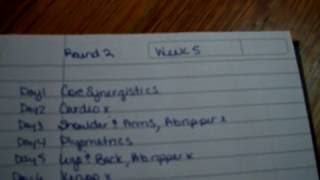 Round 2 Week 5
Day1 Core Synergistics
Day2 Cardio x
Day3 Shoulder & Arms, Abripper x
Day4 Plyometrics
Day5 Legs & Back, Abripper x
Day6 Kenpo x